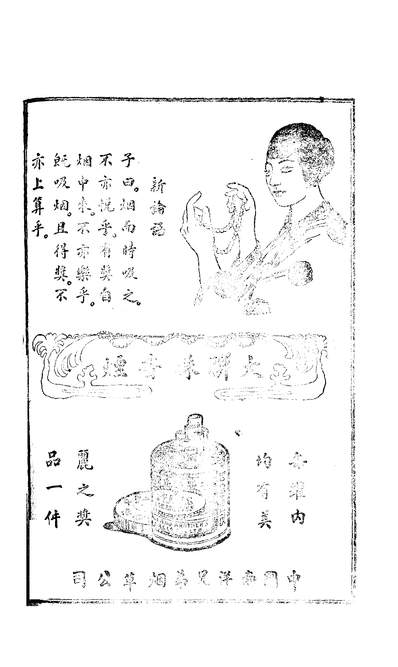 新論語
子曰。烟而時吸之。
不亦悅乎。有獎自
烟中來。不亦樂乎。
既吸烟。且得獎。不
亦上算乎。
大聯珠香煙
每罐內
均有美
麗之獎
品一件
中國南洋兄弟烟草公司